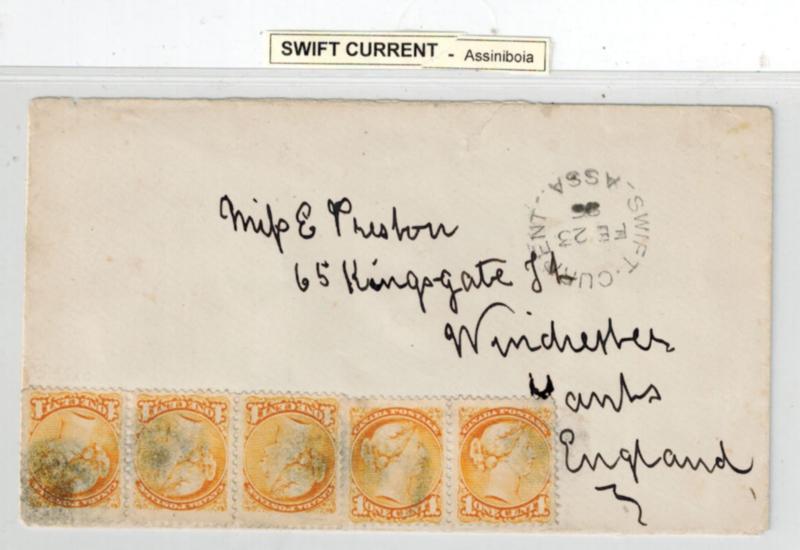 SWIFT CURRENT - Assiniboia
SWIFT·CURRENT·
ASSA
FE 23
Miss E Preston
65 Kingsgate St
Winchester
Hants
England
CANADA POSTAGE
ONE CENT
CANADA POSTAGE
ONE CENT
CANADA POSTAGE
1 ONE CENT 1
CANADA POSTAGE
1 ONE CENT 1
CANADA POSTAGE
1 ONE CENT 1